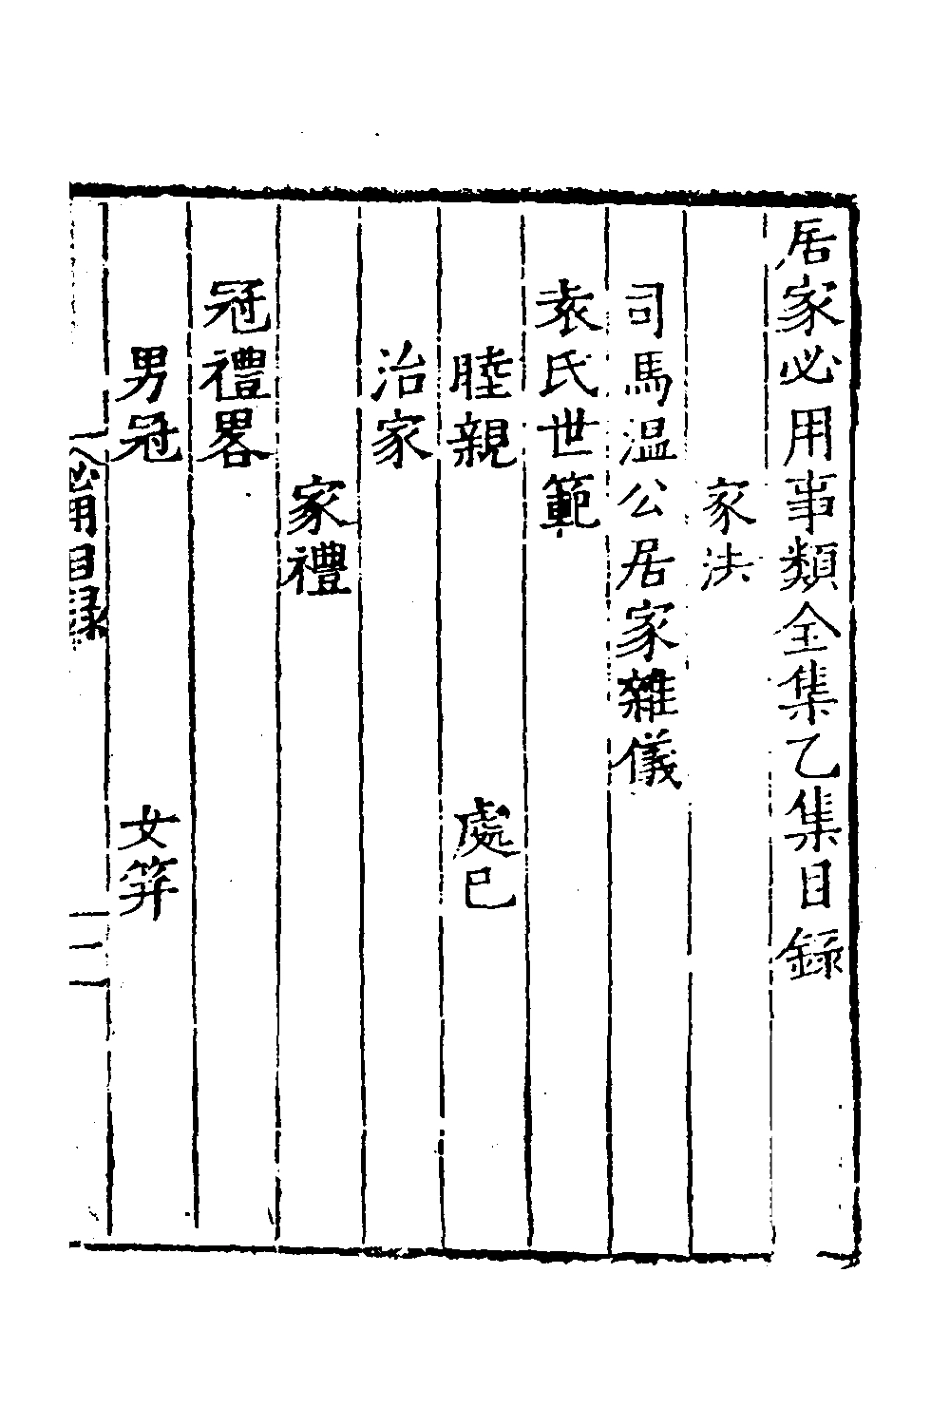 居家必用事類全集乙集目錄
家法
司馬温公居家雜儀
袁氏世範
睦親 處已
治家
家禮
冠禮畧
男冠 女笄
必用目録 二